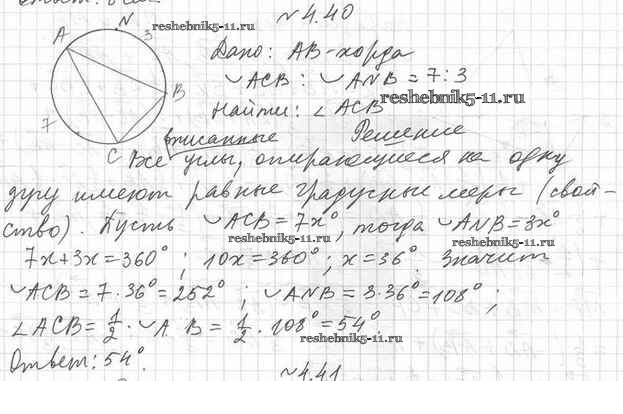 №4.40
N
reshebnik5-11.ru
A
3
Дано: AB-хорда
◡ACB : ◡ANB = 7:3
B
reshebnik5-11.ru
Найти: ∠ACB
7
вписанные Решение
C
Все углы, опирающиеся на одну
дугу имеют равные градусные меры (свой-
ство). Пусть ◡ACB = 7x°, тогда ◡ANB = 3x°
reshebnik5-11.ru reshebnik5-11.ru
7x+3x=360° ; 10x=360° ; x=36°. Значит
◡ACB = 7·36°=252° ; ◡ANB = 3·36°=108° ;
∠ACB = 1/2 · ◡A B = 1/2 · 108°=54°.
reshebnik5-11.ru
Ответ: 54°.
№4.41